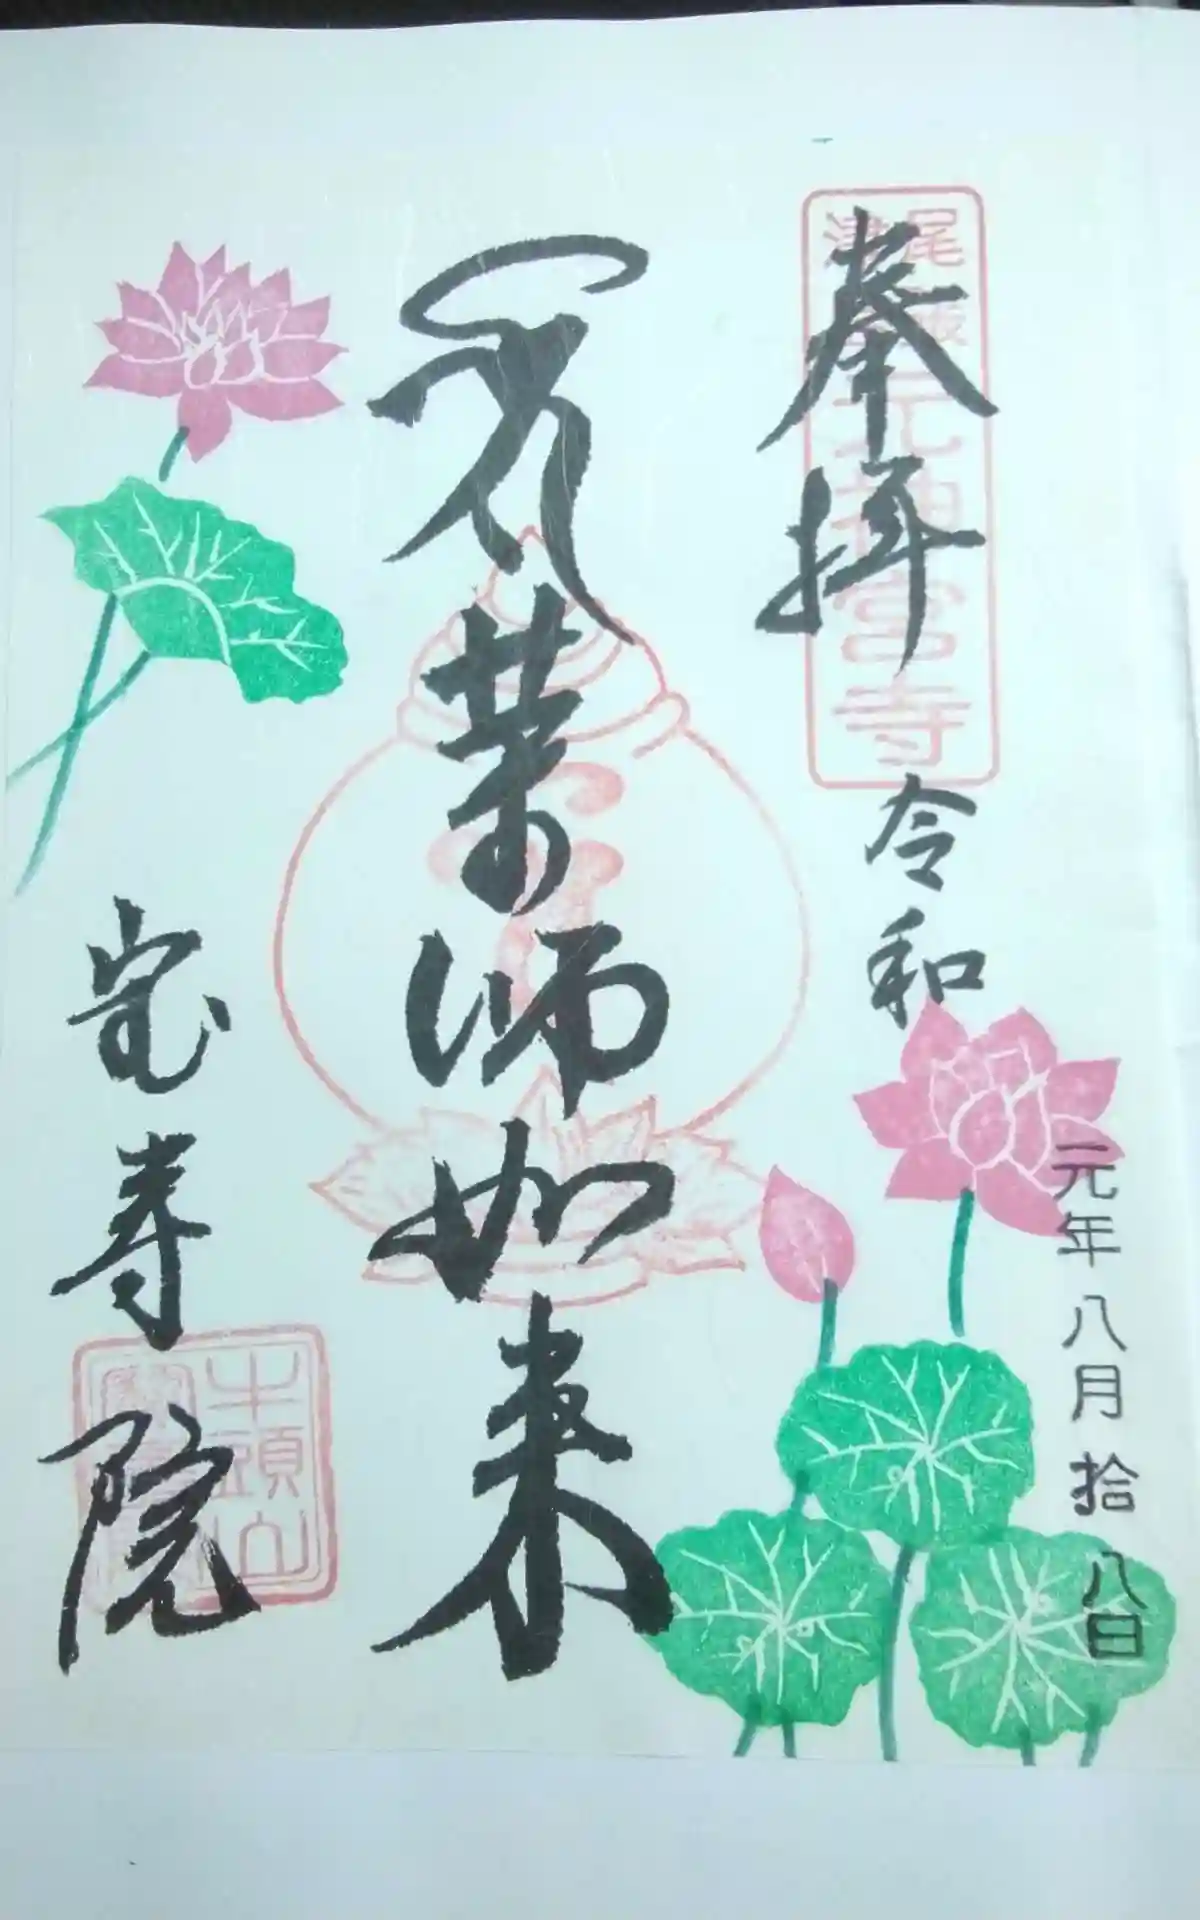 奉拝
令和
元年八月拾八日
薬師如来
宝寿院
尾
津
元神宮寺
牛頭山